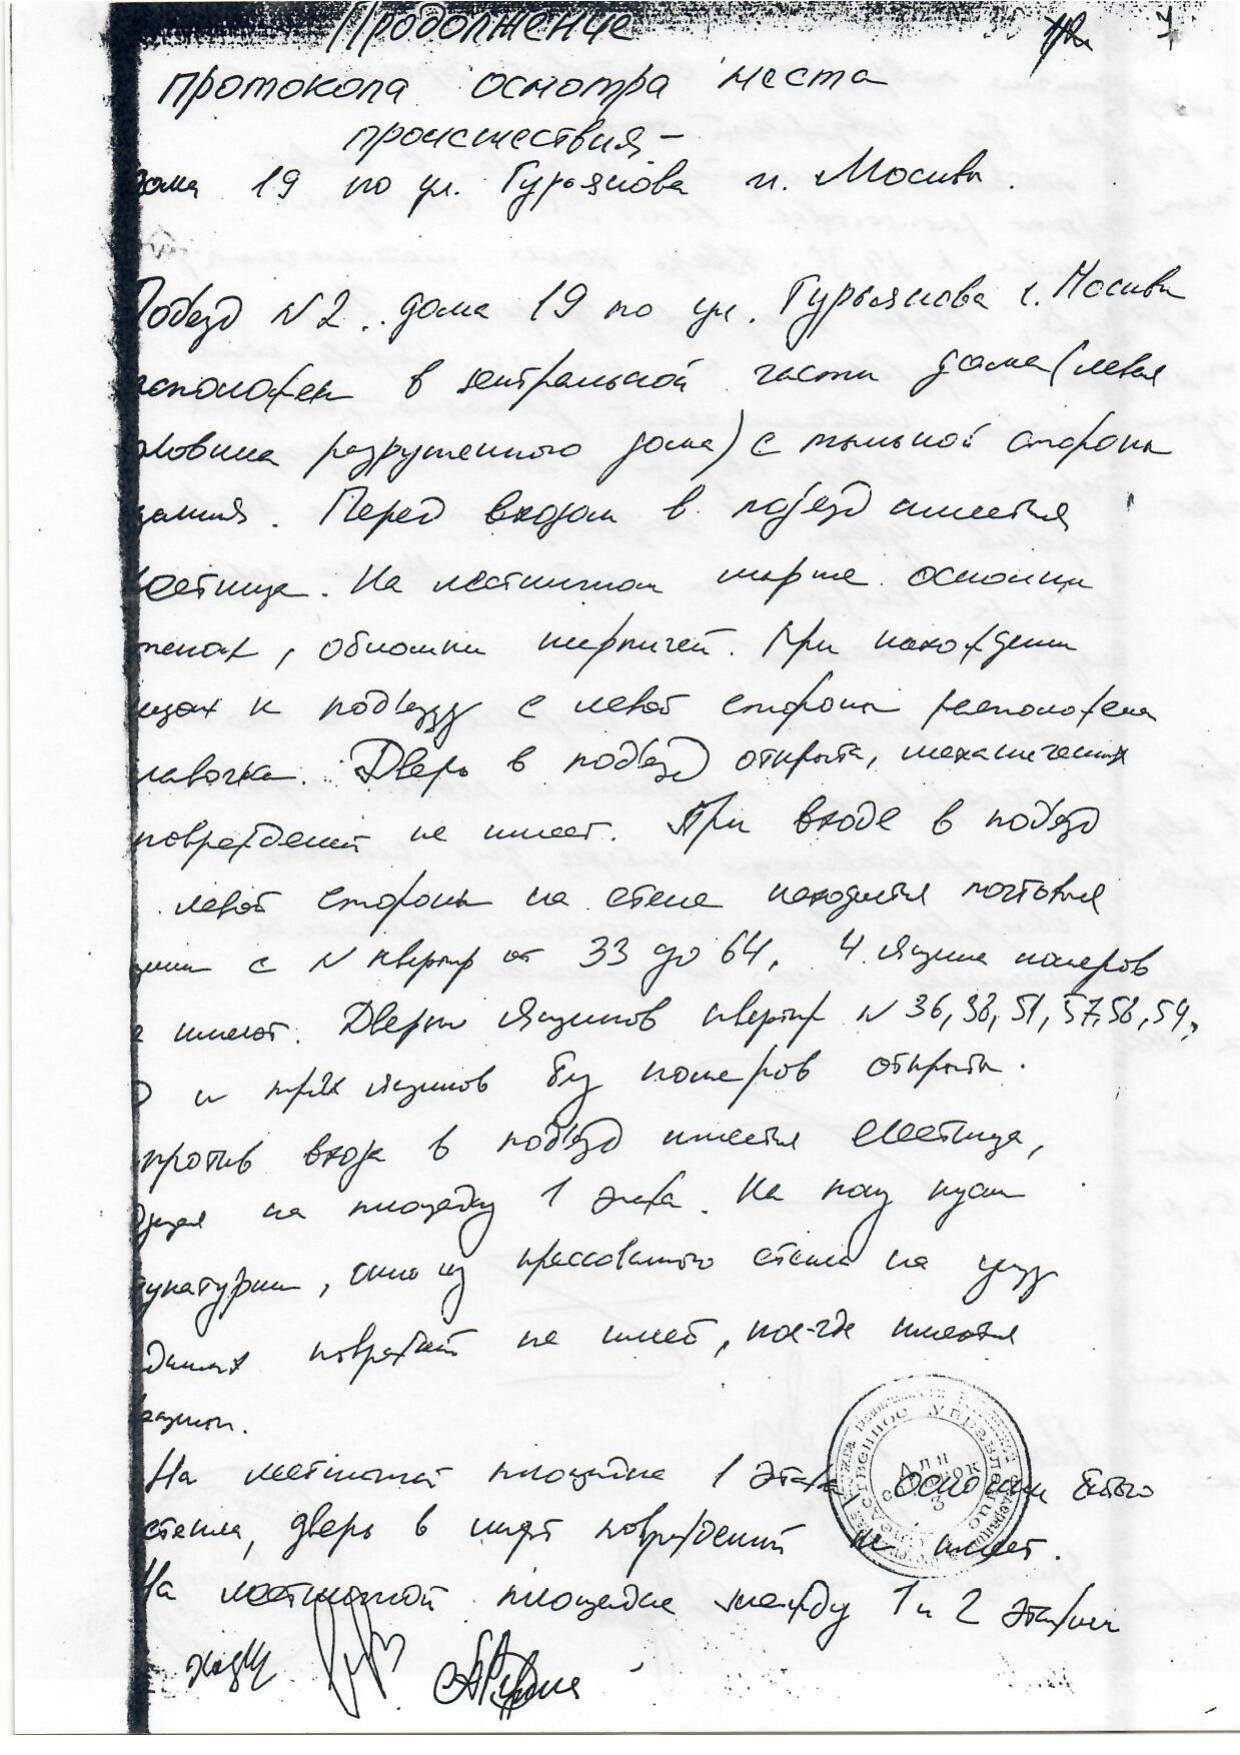 Продолжение
7
протокола осмотра места
происшествия –
дома 19 по ул. Гурьянова г. Москвы.
Подъезд №2 дома 19 по ул. Гурьянова г. Москвы
расположен в центральной части дома (левая
половина разрушенного дома) с тыльной стороны
здания. Перед входом в подъезд имеется
лестница. На лестничном марше осколки
обломки кирпичей. При нахождении
к подъезду с левой стороны расположена
лавочка. Дверь в подъезд открыта, механических
повреждений не имеет. При входе в подъезд
левой стороны на стене находится почтовые
с № квартир от 33 до 64, 4 ящика номеров
имеют. Дверки ящиков квартир № 36, 38, 51, 57, 58, 59,
и трёх ящиков без номеров открыты.
против входа в подъезд имеется лестница,
на площадку 1 этажа. На полу куски
штукатурки, окно из прессованного стекла на
повреждений не имеет, кое-где имеются
На лестничной площадке 1 этажа осколки битого
стекла, дверь в лифт повреждений не имеет.
На лестничной площадке между 1 и 2 этажами
Следственное управление
Для справок
3